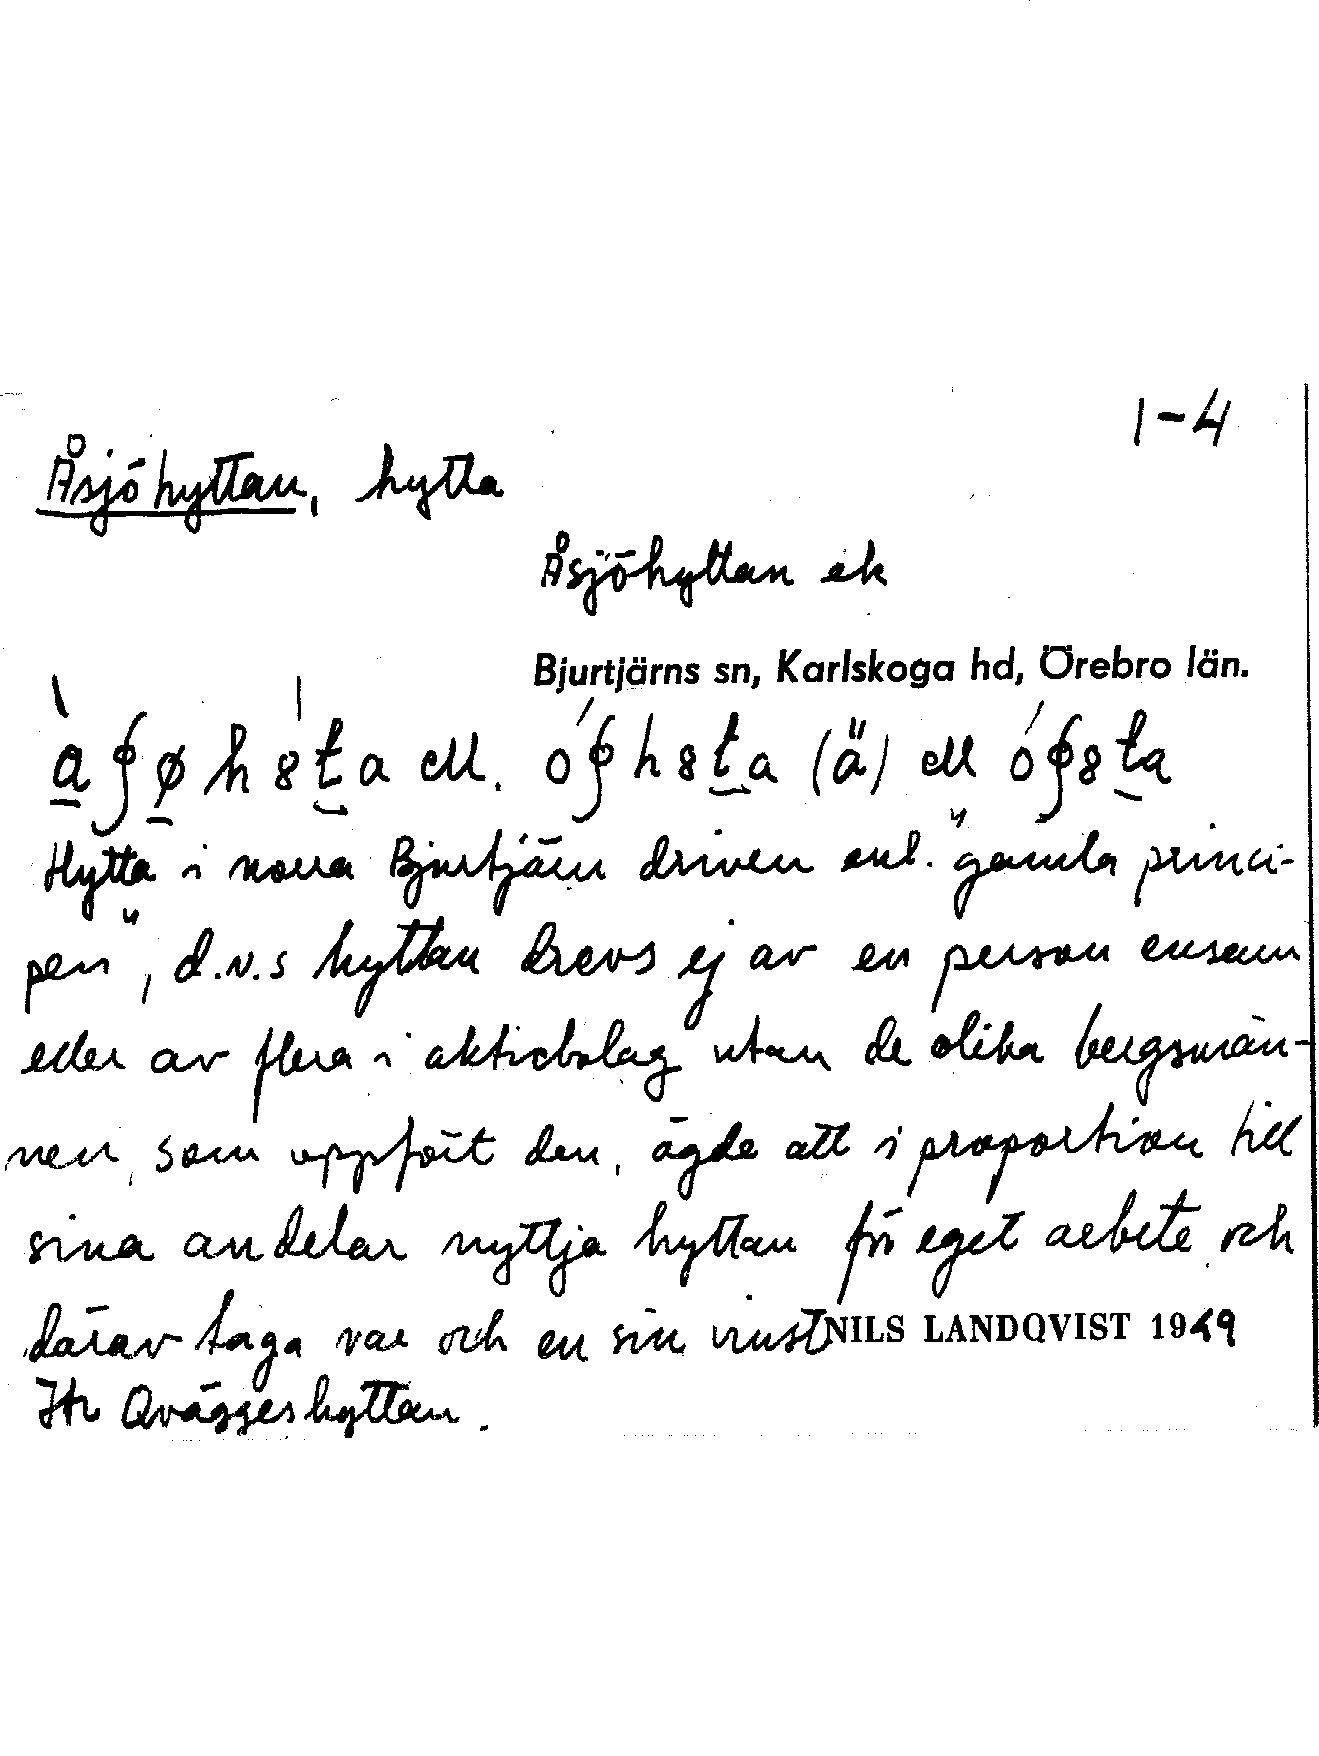 1-4
Åsjöhyttan, hytta
Åsjöhyttan ek
Bjurtjärns sn, Karlskoga hd, Örebro län.
ell. (ä) ell
Hytta i norra Bjurtjärn driven enl. "gamla princi-
pen", d.v.s hyttan drevs ej av en person ensam
eller av flera i aktiebolag utan de olika bergsmän-
nen, som uppfört den, ägde att i proportion till
sina andelar nyttja hyttan för eget arbete och
därav taga var och en sin vinst
NILS LANDQVIST 1969
Jfr Qväggeshyttan.